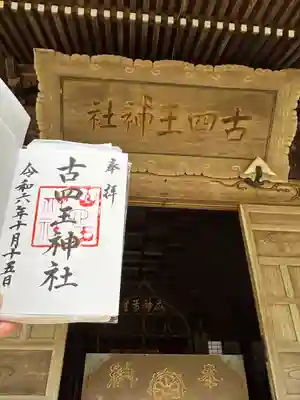 社神王四古
奉拝
古四王神社
令和六年十月十五日
奉納